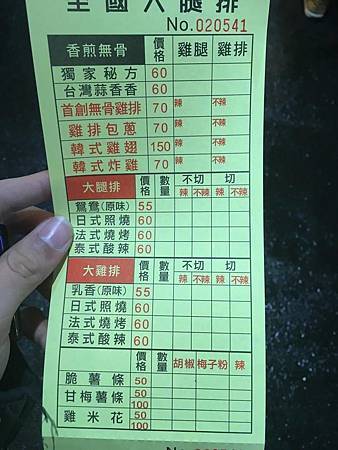 全國大腿排
No.020541
香煎無骨 價格 雞腿 雞排
獨家秘方 60
台灣蒜香香 60
首創無骨雞排 70 辣 不辣
雞排包蔥 70 辣 不辣
韓式雞翅 150 辣 不辣
韓式炸雞 70 辣 不辣
大腿排 價格 數量 不切 切
辣 不辣 辣 不辣
鴛鴦(原味) 55
日式照燒 60
法式燒烤 60
泰式酸辣 60
大雞排 價格 數量 不切 切
辣 不辣 辣 不辣
乳香(原味) 55
日式照燒 60
法式燒烤 60
泰式酸辣 60
價格 數量 胡椒 梅子粉 辣
脆薯條 50
甘梅薯條 50 100
雞米花 50 100